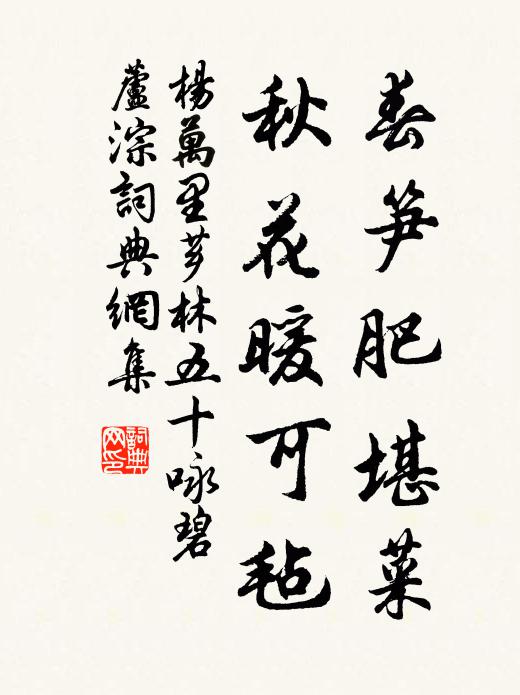 春笋肥堪菜
秋花暖可毡
楊萬里芗林五十咏碧
蘆淙詞典網集
詞典
网印